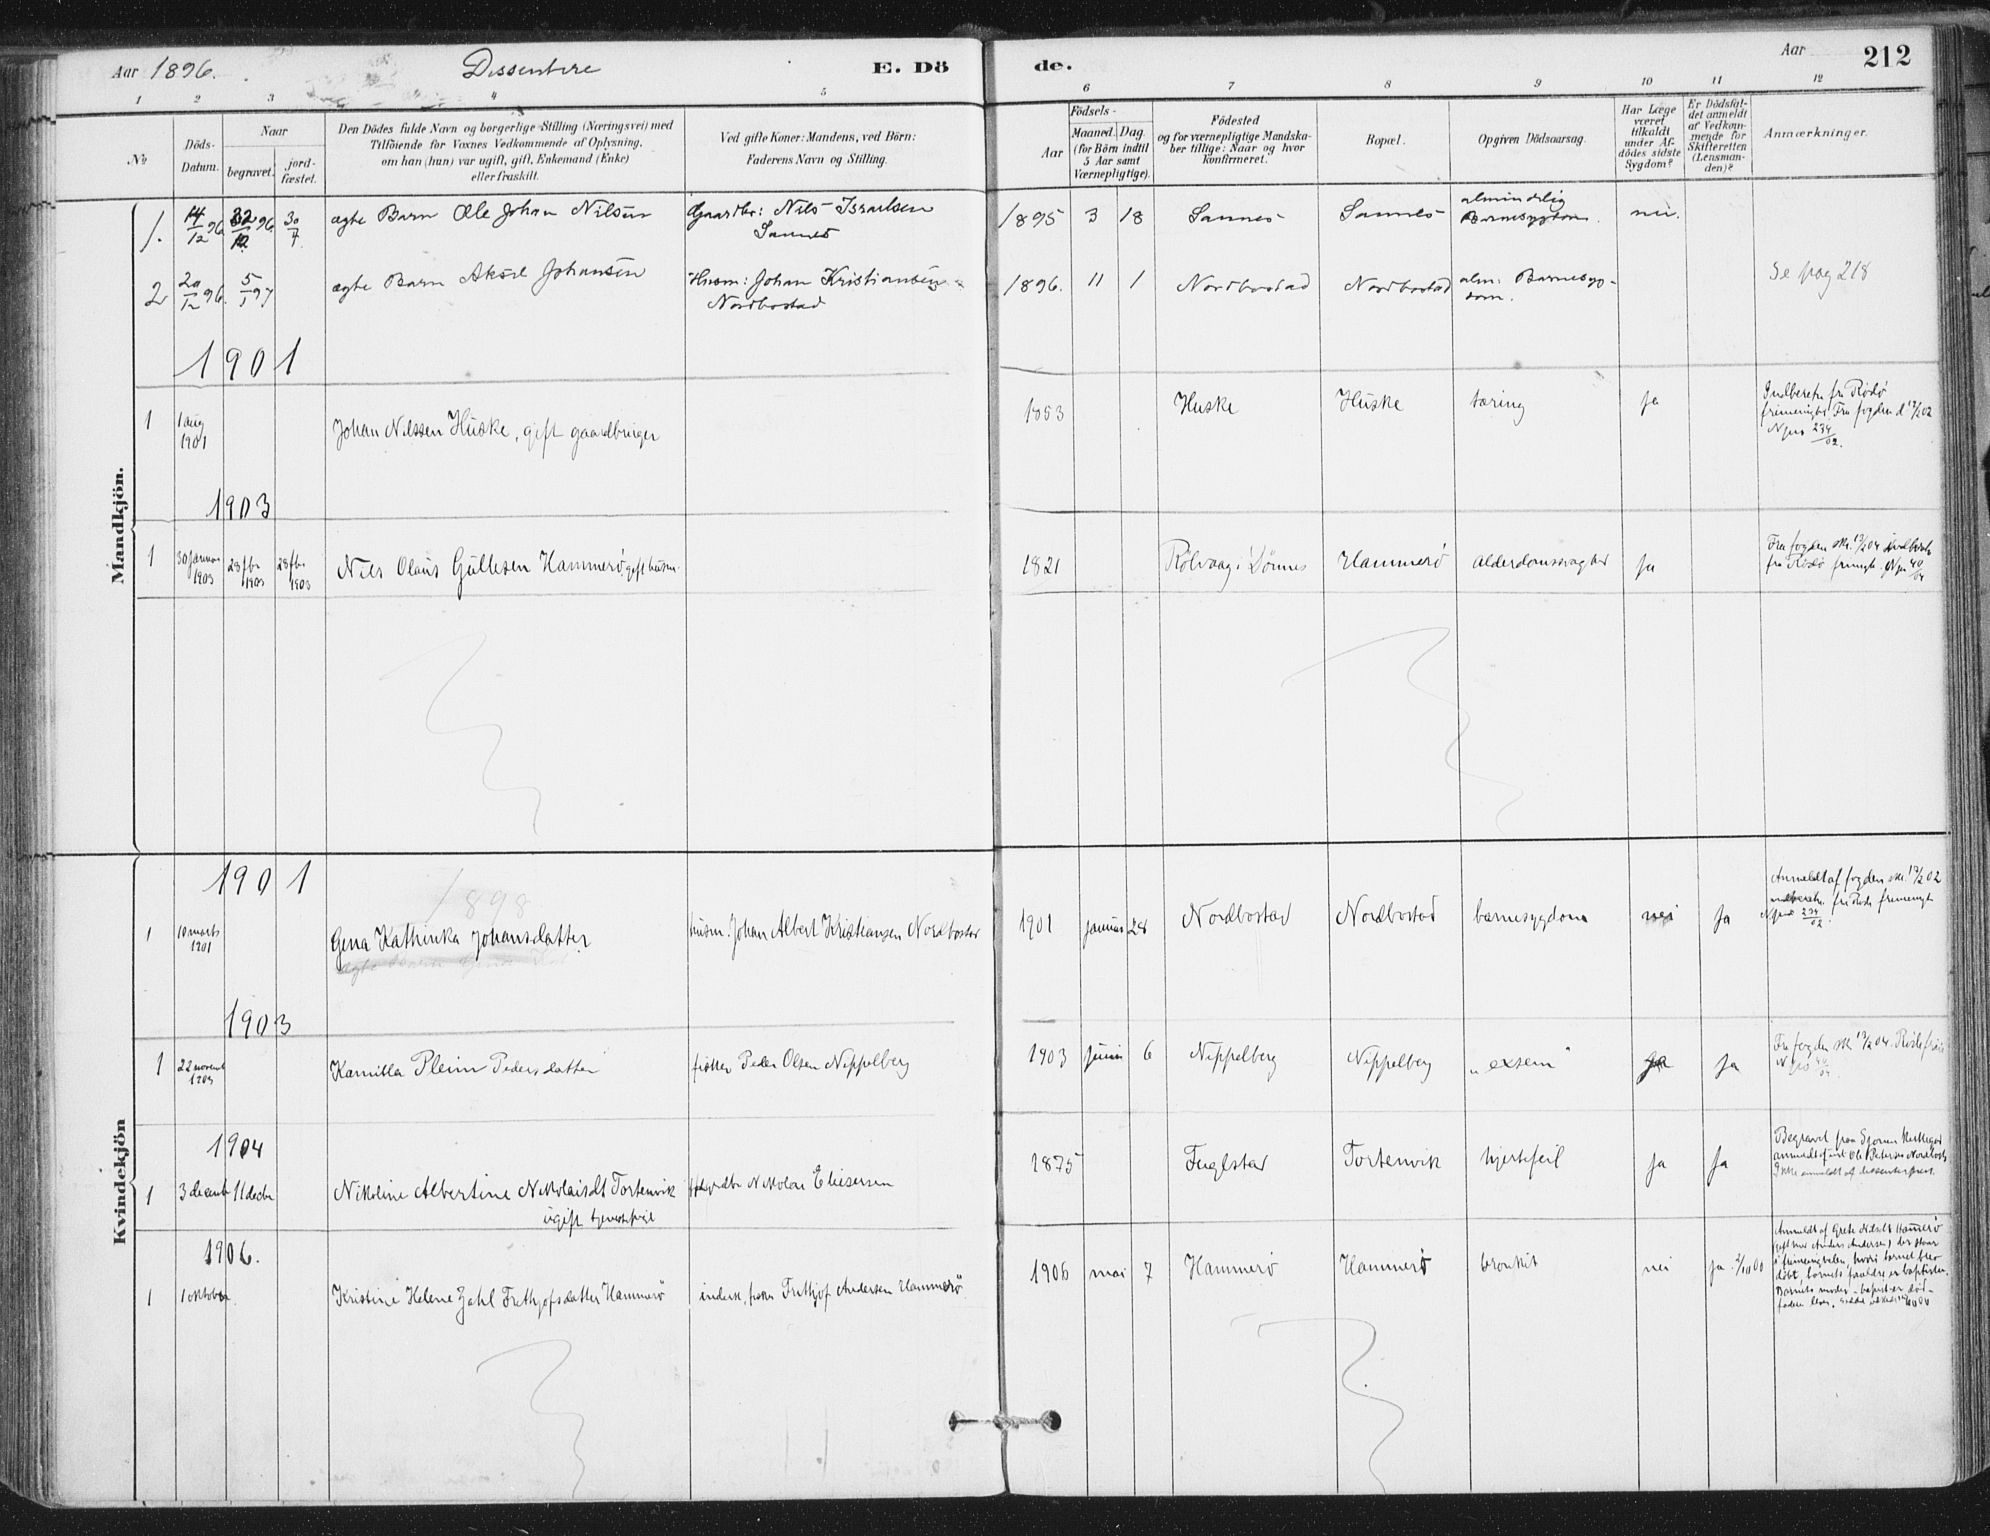 Aar 1896. Dissentere E. Dö
de. Aar 212
1 2 3 4 5
6 7 8 9 10 11 12
№
Döds-
Datum.
Naar
begravet.
jord-
fæstet.
Den Dödes fulde Navn og borgerlige Stilling (Næringsvei) med
Tilföiende for Voxnes Vedkommende af Oplysning,
om han (hun) var ugift, gift, Enkemand (Enke)
eller fraskilt.
Ved gifte Koner: Mandens, ved Börn:
Faderens Navn og Stilling.
Födsels-
Aar
Maaned. Dag.
(for Börn indtil
5 Aar samt
Værnepligtige).
Födested
og for værnepligtige Mandska-
ber tillige: Naar og hvor
konfirmeret.
Bopæl.
Opgiven Dödsaarsag.
Har Læge
været
tilkaldt
under Af-
dödes sidste
Sygdom?
Er Dödsfal-
det anmeldt
af Vedkom-
mende for
Skifteretten
(Lensman-
den)?
Anmærkninger.
Mandkjön.
1. 14/12 96 96 30/4 ægte Barn Ole Johan Nilsen Gaardbr: Nils Israelsen
Sannes
1895 3 18 Sannes Sannes almindelig
Barnesygdom. nei.
2 20/12 96. 5/1 97 ægte Barn Aksel Johansen Husm: Johan Kristiansen
Nordbostad
1896. 11 1 Nordbostad Nordbostad alm: Barnesyg-
dom. Se pag 218
1901
1 1 aug
1901 Johan Nilssen Huske, gift gaardbruger
1853 Huske Huske tæring ja Indberetn fra Rödö
frimenighet Fra fogden d 17/2 02
Njus 234/02.
1903
1 30 januar
1903 28 fbr
1903 28 fbr
1903 Nils Olaus Gullesen Hammerö, gift husm.
1821 Rölvaag i Dönnes Hammerö alderdomssvaghed ja Fra fogden skr. 13/2 04 indberetn
fra Rödö frimgh. Njus 40/04
Kvindekjön
1901
1898
1 10 marts
1901 Gina Kathinka Johansdatter husm. Johan Albert Kristiansen Nordbostad
1901 januar 28 Nordbostad Nordbostad barnesygdom nei ja Anmeldt af fogden skr. 17/2 02
indberetn. fra Rödö frimengh
Njus 234/02
1903
1 22 novemb
1903 Kamilla Pleim Pedersdatter fisker Peder Olsen Nippelberg
1903 juni 6 Nippelberg Nippelberg "exsem" ja ja Fra fogden skr 13/2 04. Rödö frim
Njus 40/04.
1904
1 3 decemb 11 decbr Nikoline Albertine Nikolaisdt Tortenvik Nikolai Eliesersen
ugift tjenestepige
1875 Fuglstad Tortenvik hjertefeil ja ja Begravet paa
anmeldt af Ole Petersen Nordbostad
Ikke anmeldt af dissenterprest.
1906.
1 1 oktober Kristine Helene Zahl Frithjofsdatter Hammerö inderst, fisker Frithjof Andersen Hammerö
1906 mai 7 Hammerö Hammerö bronkit nei ja Anmeldt af Grete Hammerö
(gift med Anders Andersen) der staar
i frimenigheten, hvori barnet blev
döbt, barnets forældre er baptister.
Barnets moder - baptist er död -
faderen lever.